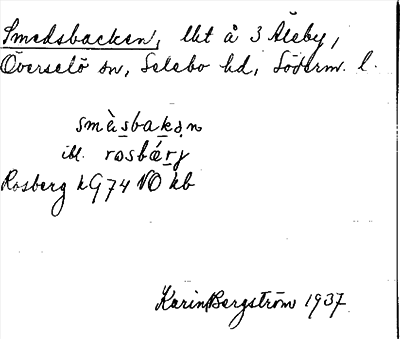 Smedsbacken, lht å 3 Åleby,
Överselö sn, Selebo hd, Söderm. l.
smè̱sbakǝn
ibl. rosbárj
Rosberg kG74 NO kb
Karin Bergström 1937